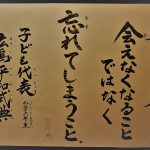 会えなくなること
ではなく
忘れてしまうこと。
子ども代表
広島平和式典